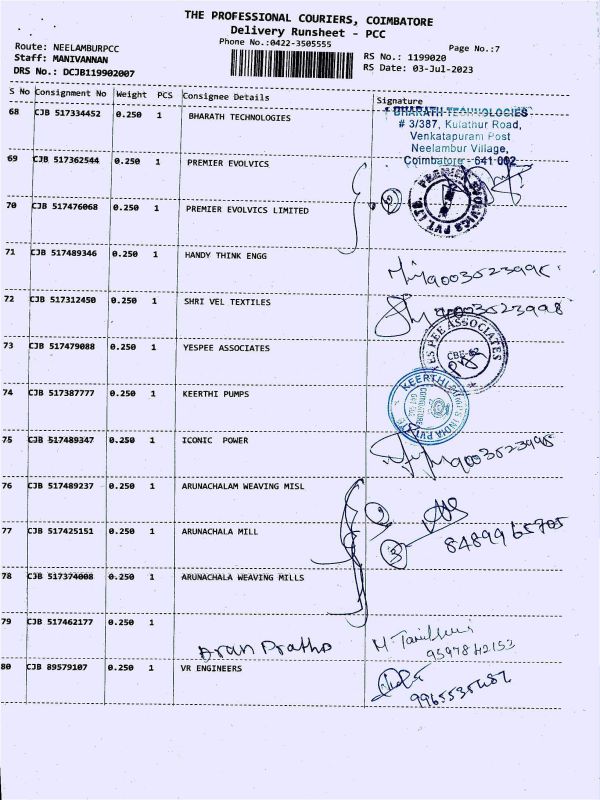 THE PROFESSIONAL COURIERS, COIMBATORE
Delivery Runsheet - PCC
Phone No.:0422-3505555
Page No.:7
Route: NEELAMBURPCC
Staff: MANIVANNAN
DRS No.: DCJB119902007
RS No.: 1199020
RS Date: 03-Jul-2023
S No Consignment No Weight PCS Consignee Details Signature
68 CJB 517334452 0.250 1 BHARATH TECHNOLOGIES
BHARATH TECHNOLOGIES
# 3/387, Kulathur Road,
Venkatapuram Post
Neelambur Village,
Coimbatore - 641 062
69 CJB 517362544 0.250 1 PREMIER EVOLVICS
70 CJB 517476068 0.250 1 PREMIER EVOLVICS LIMITED
2
PREMIER EVOLVICS PVT LTD
71 CJB 517489346 0.250 1 HANDY THINK ENGG
72 CJB 517312450 0.250 1 SHRI VEL TEXTILES
9003523998
73 CJB 517479088 0.250 1 YESPEE ASSOCIATES
ES PEE ASSOCIATES
74 CJB 517387777 0.250 1 KEERTHI PUMPS
KEERTHI INDIA PVT
75 CJB 517489347 0.250 1 ICONIC POWER
9003523998
76 CJB 517489237 0.250 1 ARUNACHALAM WEAVING MISL
77 CJB 517425151 0.250 1 ARUNACHALA MILL
3
8489965705
78 CJB 517374008 0.250 1 ARUNACHALA WEAVING MILLS
79 CJB 517462177 0.250 1
Aran Pratho
9597842153
80 CJB 89579107 0.250 1 VR ENGINEERS